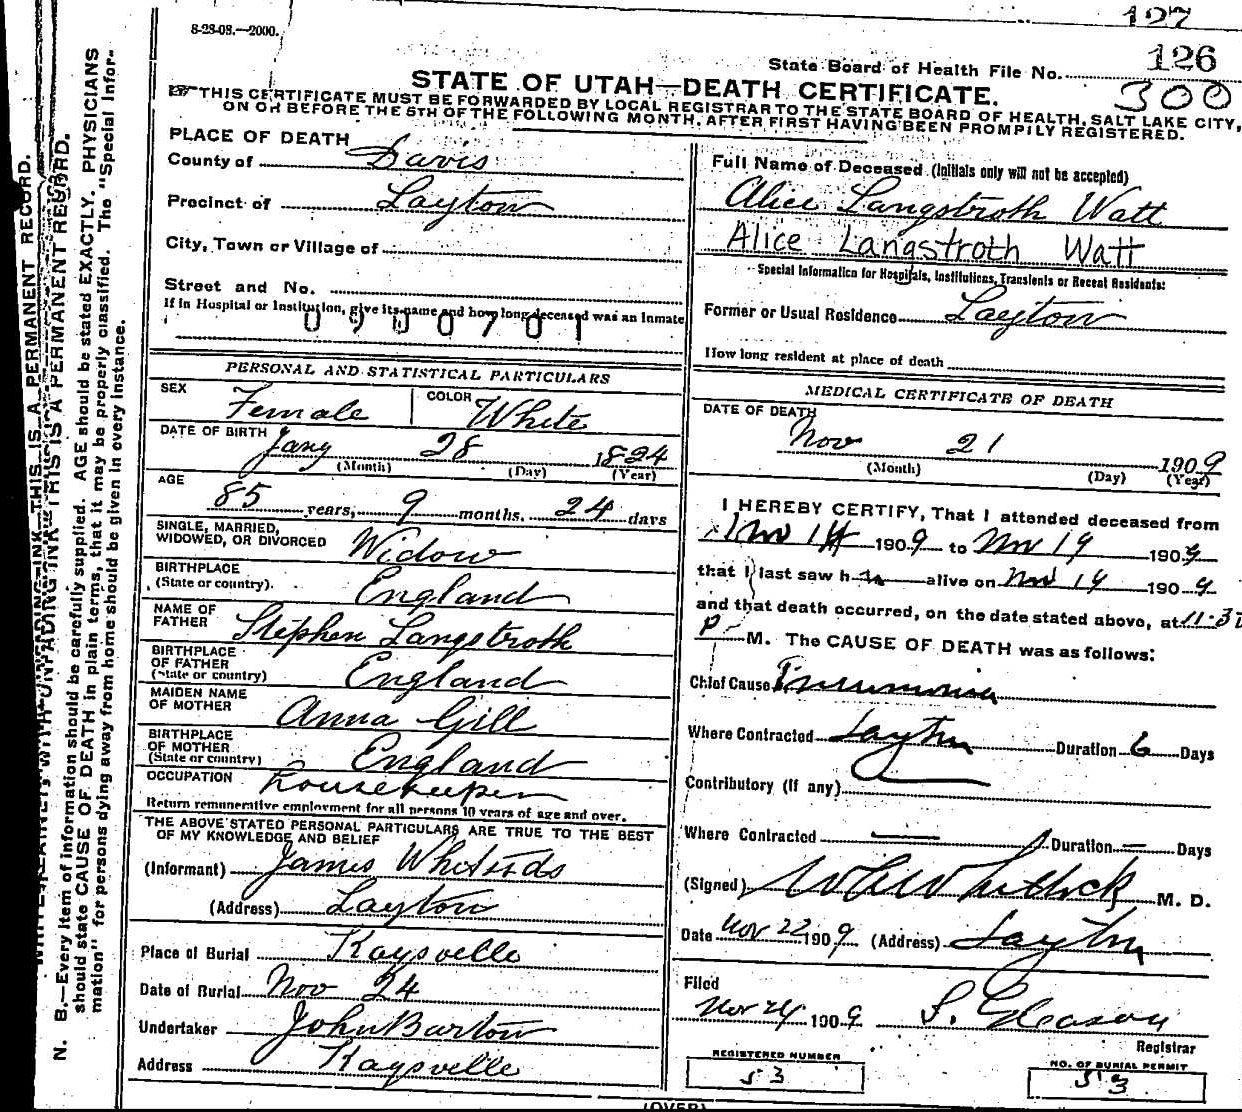 127
8-28-08.—2000.
State Board of Health File No. 126
STATE OF UTAH—DEATH CERTIFICATE. 300
THIS CERTIFICATE MUST BE FORWARDED BY LOCAL REGISTRAR TO THE STATE BOARD OF HEALTH, SALT LAKE CITY,
ON OR BEFORE THE 5TH OF THE FOLLOWING MONTH, AFTER FIRST HAVING BEEN PROMPTLY REGISTERED.
PLACE OF DEATH
County of Davis
Precinct of Layton
City, Town or Village of
Street and No.
If in Hospital or Institution, give its name and how long deceased was an Inmate
0900701
PERSONAL AND STATISTICAL PARTICULARS
SEX Female COLOR White
DATE OF BIRTH Jany 28 1824
(Month) (Day) (Year)
AGE 85 years, 9 months, 24 days
SINGLE, MARRIED,
WIDOWED, OR DIVORCED Widow
BIRTHPLACE
(State or country). England
NAME OF
FATHER Stephen Langstroth
BIRTHPLACE
OF FATHER
(State or country) England
MAIDEN NAME
OF MOTHER Anna Gill
BIRTHPLACE
OF MOTHER
(State or country) England
OCCUPATION housekeeper
Return remunerative employment for all persons 10 years of age and over.
THE ABOVE STATED PERSONAL PARTICULARS ARE TRUE TO THE BEST
OF MY KNOWLEDGE AND BELIEF
(Informant) James
(Address) Layton
Place of Burial Kaysville
Date of Burial Nov 24
Undertaker John Barton
Address Kaysville
Full Name of Deceased (Initials only will not be accepted)
Alice Langstroth Watt
Alice Langstroth Watt
Special Information for Hospitals, Institutions, Transients or Recent Residents:
Former or Usual Residence Layton
How long resident at place of death
MEDICAL CERTIFICATE OF DEATH
DATE OF DEATH
Nov 21 1909
(Month) (Day) (Year)
I HEREBY CERTIFY, That I attended deceased from
Nov 14 1909 to Nov 19 1909
that I last saw h alive on Nov 19 1909
and that death occurred, on the date stated above, at 11.30
P M. The CAUSE OF DEATH was as follows:
Chief Cause Pneumonia
Where Contracted Layton Duration 6 Days
Contributory (if any)
Where Contracted — Duration — Days
(Signed) Whitlock M. D.
Date Nov 22 1909 (Address) Layton
Filed
Nov 24 1909 S. Gleason
Registrar
REGISTERED NUMBER
53
NO. OF BURIAL PERMIT
53
(OVER)
N. B.—Every item of information should be carefully supplied. AGE should be stated EXACTLY. PHYSICIANS
should state CAUSE OF DEATH in plain terms, that it may be properly classified. The "Special Infor-
mation" for persons dying away from home should be given in every instance.
THIS IS A PERMANENT RECORD.
WRITE PLAINLY WITH UNFADING INK—THIS IS A PERMANENT RECORD.